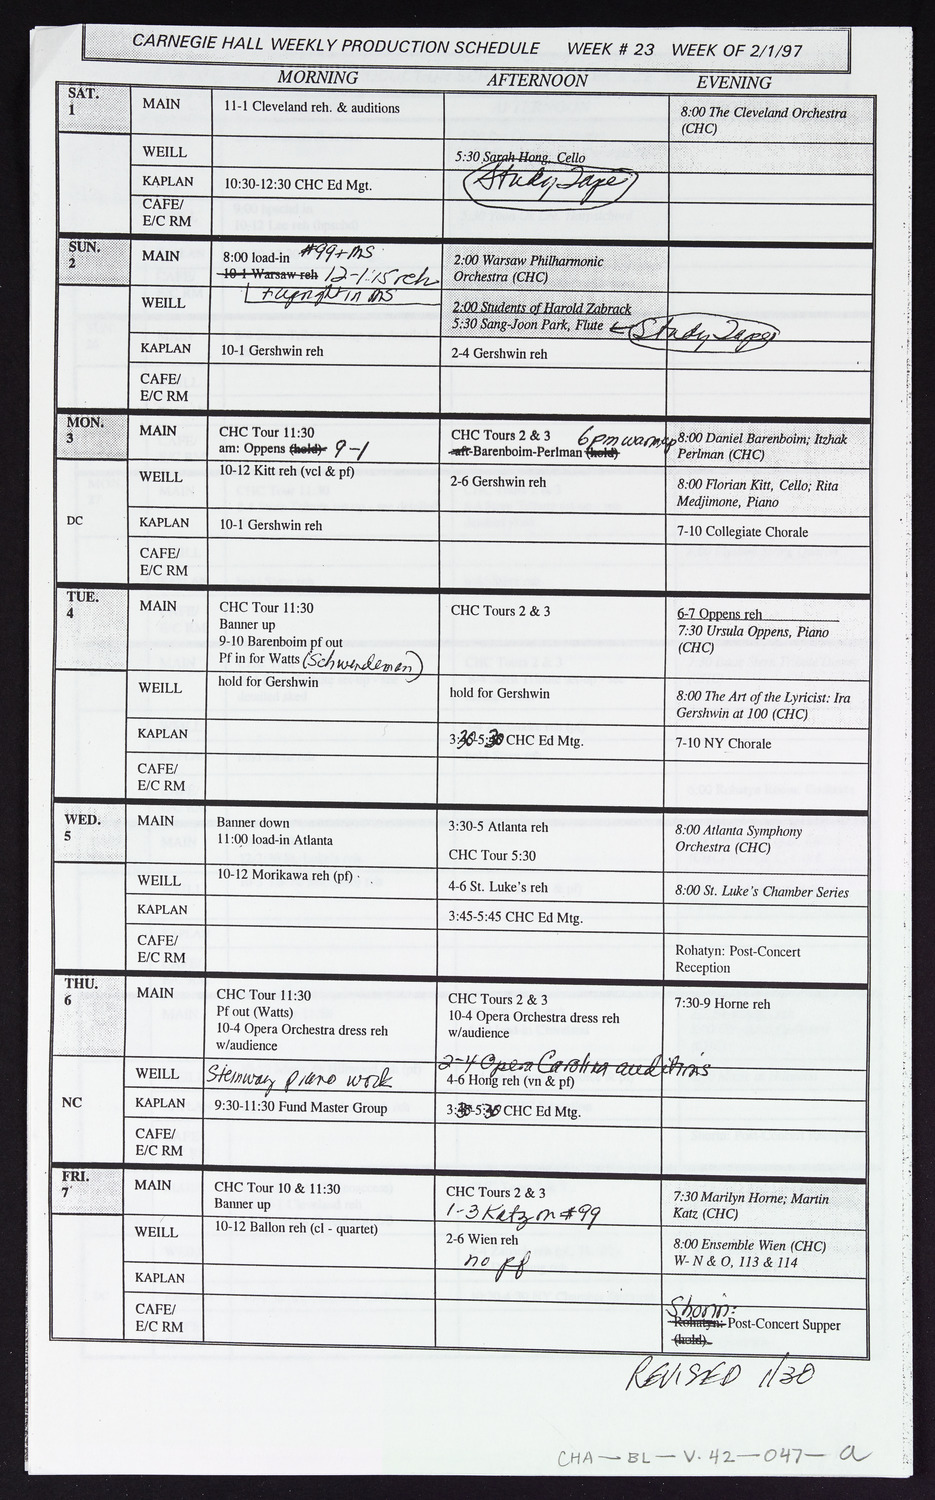 CARNEGIE HALL WEEKLY PRODUCTION SCHEDULE WEEK # 23 WEEK OF 2/1/97
MORNING AFTERNOON EVENING
SAT.
1
MAIN
11-1 Cleveland reh. & auditions
8:00 The Cleveland Orchestra
(CHC)
WEILL
5:30 Sarah Hong, Cello
Study Tape
KAPLAN
10:30-12:30 CHC Ed Mgt.
CAFE/
E/C RM
SUN.
2
MAIN
8:00 load-in #99 + MS
10-1 Warsaw reh 12-1:15 reh
2:00 Warsaw Philharmonic
Orchestra (CHC)
WEILL
in MS
2:00 Students of Harold Zabrack
5:30 Sang-Joon Park, Flute Study Tape
KAPLAN
10-1 Gershwin reh
2-4 Gershwin reh
CAFE/
E/C RM
MON.
3
MAIN
CHC Tour 11:30
am: Oppens (hold) 9-1
CHC Tours 2 & 3 6pm warmup
aft-Barenboim-Perlman (hold)
8:00 Daniel Barenboim; Itzhak
Perlman (CHC)
WEILL
10-12 Kitt reh (vcl & pf)
2-6 Gershwin reh
8:00 Florian Kitt, Cello; Rita
Medjimone, Piano
DC
KAPLAN
10-1 Gershwin reh
7-10 Collegiate Chorale
CAFE/
E/C RM
TUE.
4
MAIN
CHC Tour 11:30
Banner up
9-10 Barenboim pf out
Pf in for Watts (Schwendeman)
CHC Tours 2 & 3
6-7 Oppens reh
7:30 Ursula Oppens, Piano
(CHC)
WEILL
hold for Gershwin
hold for Gershwin
8:00 The Art of the Lyricist: Ira
Gershwin at 100 (CHC)
KAPLAN
3:30-5:30 CHC Ed Mtg.
7-10 NY Chorale
CAFE/
E/C RM
WED.
5
MAIN
Banner down
11:00 load-in Atlanta
3:30-5 Atlanta reh
CHC Tour 5:30
8:00 Atlanta Symphony
Orchestra (CHC)
WEILL
10-12 Morikawa reh (pf)
4-6 St. Luke's reh
8:00 St. Luke's Chamber Series
KAPLAN
3:45-5:45 CHC Ed Mtg.
CAFE/
E/C RM
Rohatyn: Post-Concert
Reception
THU.
6
MAIN
CHC Tour 11:30
Pf out (Watts)
10-4 Opera Orchestra dress reh
w/audience
CHC Tours 2 & 3
10-4 Opera Orchestra dress reh
w/audience
7:30-9 Horne reh
WEILL
Steinway piano work
2-4 Opera Carolina auditions
4-6 Hong reh (vn & pf)
NC
KAPLAN
9:30-11:30 Fund Master Group
3:30-5:30 CHC Ed Mtg.
CAFE/
E/C RM
FRI.
7
MAIN
CHC Tour 10 & 11:30
Banner up
CHC Tours 2 & 3
1-3 Katz on #99
7:30 Marilyn Horne; Martin
Katz (CHC)
WEILL
10-12 Ballon reh (cl - quartet)
2-6 Wien reh
no pf
8:00 Ensemble Wien (CHC)
W- N & O, 113 & 114
KAPLAN
CAFE/
E/C RM
Shorin:
Rohatyn: Post-Concert Supper
(hold)
REVISED 1/30
CHA-BL-V.42-047-a